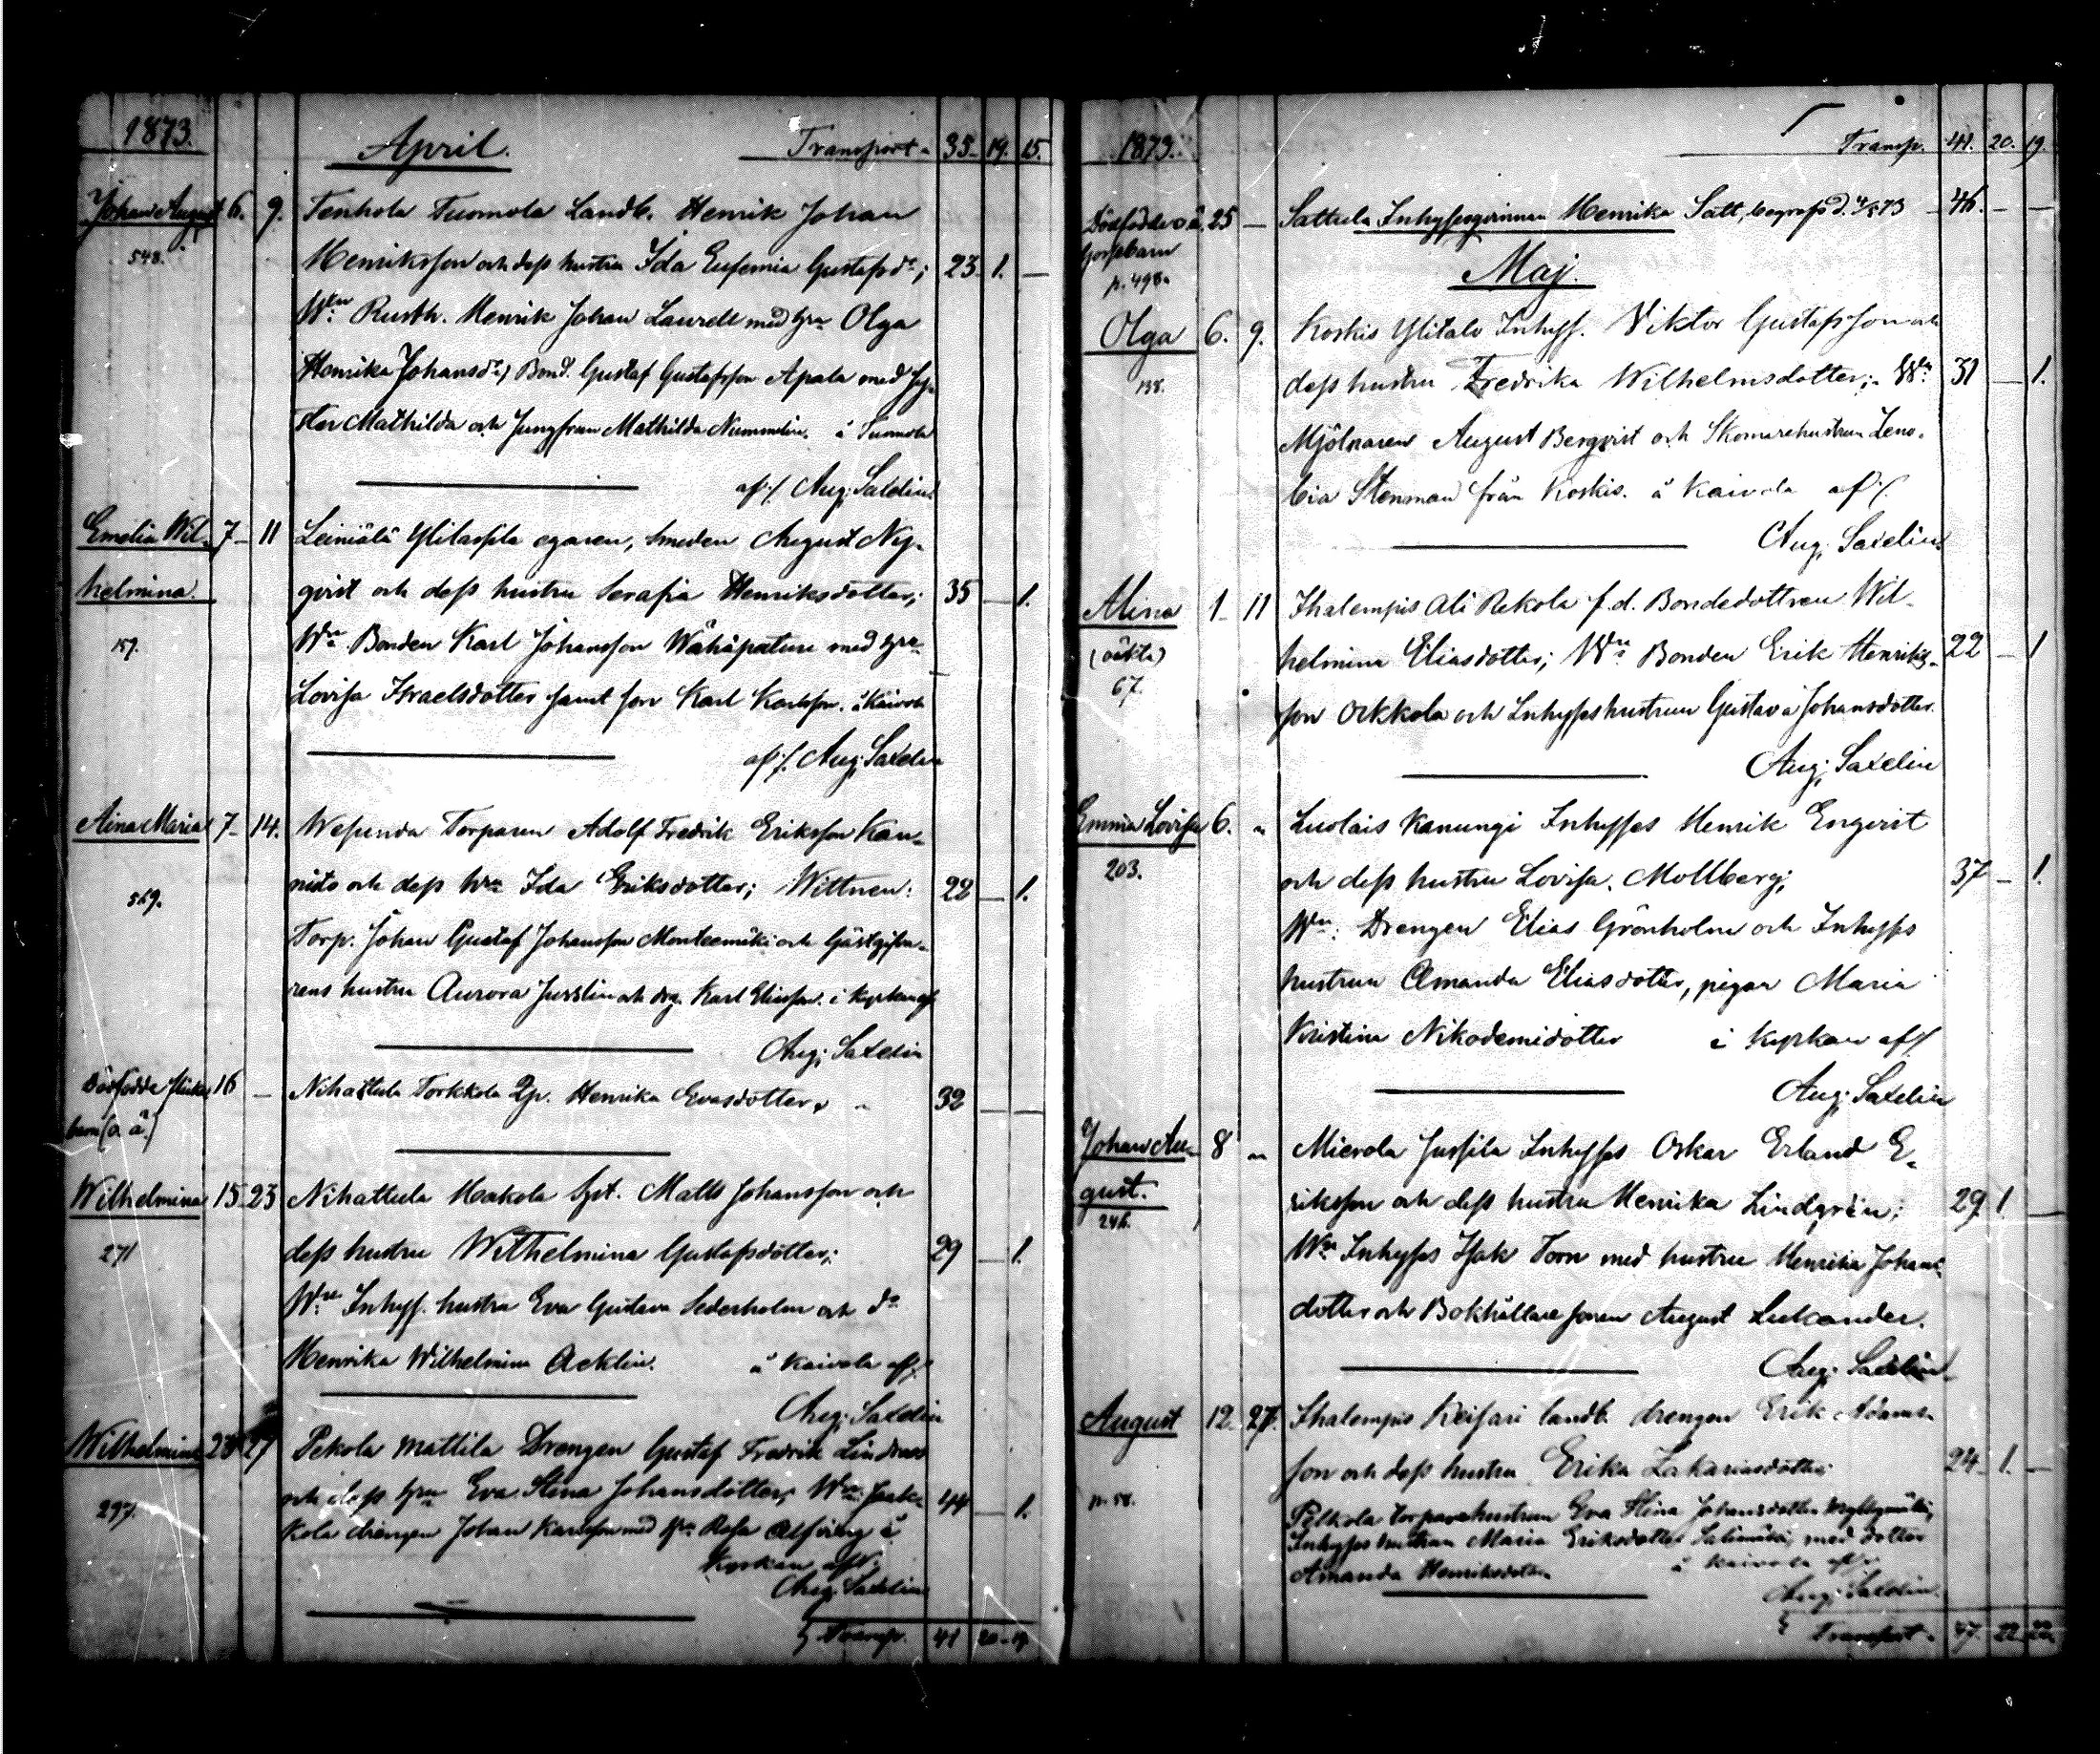 1873. April. Transport. 35. 19. 15.
Johan August 6. 9. Tenhola Tuomola Landb. Henrik Johan
548. Henriksson och dess hustru Ida Eufemia Gustafsdr; 23. 1. —
Wn: Rusth. Henrik Johan Laurell med hru Olga
Henrika Johansdr, Bond. Gustaf Gustafsson Apala med Sys-
ter Mathilda och Jungfrau Mathilda Nummelin. å Tuomola
af:/. Aug: Saxelin.
Emelia Wil- 7 — 11 Leiniälä Ylitassila egaren, Smeden August Ny-
helmina. qvist och dess hustru Serafia Henriksdotter; 35 — 1.
159. Wne Bonden Karl Johansson Wähäpeture med hru
Lovisa Israelsdotter samt son Karl Karlsson. å Kaivola
af:/. Aug: Saxelin
Aina Maria 7 — 14. Wesunda Torparen Adolf Fredrik Eriksson Kan-
569. nisto och dess hru Ida Eriksdotter; Wittnen: 22 — 1.
Torp. Johan Gustaf Johansson Monteemäki och Gästgifva-
rens hustru Aurora Jusslin och drg. Karl Eliasson. i Kyrkan af
Aug: Saxelin
Dödfödde flicke 16 — Nihattula Torkkola Qp. Henrika Evasdotter. 32 — —
barn (o. ä.)
Wilhelmina 15 23 Nihattula Hakola Syt. Matts Johansson och
271 dess hustru Wilhelmina Gustafsdotter; 29 — 1.
Wne Inhys. hustru Eva Gustava Sederholm och do
Henrika Wilhelmina Acklin. å Kaivola af:/.
Aug: Saxelin
Wilhelmina 23 27 Pekola Mattila Drengen Gustaf Fredrik Lindroos
297. och dess hru Eva Stina Johansdotter; Wne Jaak- 44 — 1.
kola drengen Johan Karlsson med hru Rosa Alfving å
Kyrkan af:/.
Aug: Saxelin
Transp. 41 20 19
1873. Transp. 41. 20. 19.
Dödföddt o ä. 25 — Sattula Inhysesqvinnan Henrika Satt, begrafs d. 4/5 73 46. — —
Gossebarn
p. 498.
Maj.
Olga 6. 9. Koskis Ylitalo Inhys. Viktor Gustafsson och
138. dess hustru Fredrika Wilhelmsdotter; Wn: 31 — 1.
Mjölnaren August Bergqvist och Skomarehustrun Zeno-
bia Stenman från Koskis. å Kaivola af:/.
Aug: Saxelin
Alina 1 — 11 Ihalempis Ali Rekola f.d. Bondedottren Wil-
(oäkta) helmina Eliasdotter; Wne Bonden Erik Henriks- 22 — 1
67. son Orkkola och Inhyseshustrun Gustava Johansdotter.
Aug: Saxelin
Emma Lovisa 6. " Luolais Kanungi Inhyses Henrik Engvist
203. och dess hustru Lovisa Mollberg; 37 — 1.
Wn: Drengen Elias Grönholm och Inhyses
hustrun Amanda Eliasdotter, pigan Maria
Kristina Nikodemidotter i Kyrkan af:/.
Aug: Saxelin
Johan Au- 8 " Mierola Jussila Inhyses Oskar Erland E-
gust. riksson och dess hustru Henrika Lindgrén; 29 1. —
246. Wne Inhyses Isak Torn med hustru Henrika Johans-
dotter och Bokhållare sonen August Lukander.
Aug: Saxelin
August 12. 27. Ihalempis Keisari landb. drengen Erik Adams-
son och dess hustru Erika Zakariasdotter; 24. 1. —
p. 58. Pelkola torparehustrun Eva Stina Johansdotter Myllymäki,
Inhyses hustrun Maria Eriksdotter Salimäki, med dotter
Amanda Henriksdotter å Kaivola af:/.
Aug: Saxelin.
Transport. 47. 22. 22.